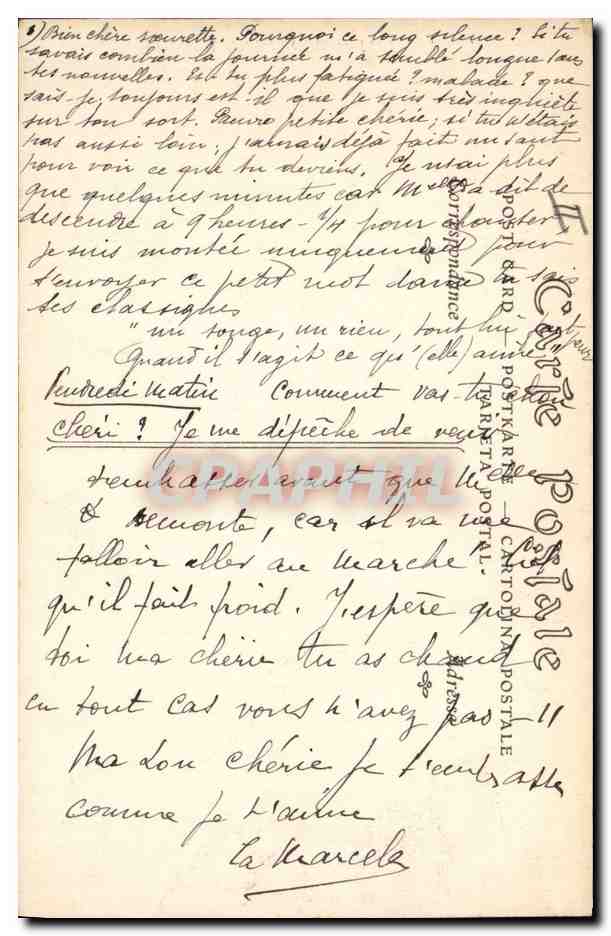 Bien chère sœurette. Pourquoi ce long silence ? Si tu
savais combien la journée m'a semblé longue sans
tes nouvelles. Es tu plus fatiguée ? malade ? que
sais-je, toujours est-il que je suis très inquiète
sur ton sort. Pauvre petite chérie ; si tu n'étais
pas aussi loin, j'aurais déjà fait un saut
pour voir ce que tu deviens. Je n'ai plus
que quelques minutes car Melle a dit de
descendre à 9 heures - 1/4 pour
je suis montée uniquement pour
t'envoyer ce petit mot tu sais
tes classiques
"un songe, un rien, tout lui fait peur
Quand il s'agit ce qu'(elle) aime"
Vendredi Matin Comment vas-tu chou
chéri ? Je me dépêche de venir
t'embrasser avant que Melle
remonte, car il va me
falloir aller au marché.
qu'il fait froid. J'espère que
toi ma chérie tu as chaud
en tout cas vous n'avez pas - 11
Ma Lou chérie je t'embrasse
comme je t'aime
ta Marcelle
II
Carte Postale
POST CARD — POSTKARTE — CARTOLINA POSTALE
TARJETA POSTAL.
Correspondance
Adresse
CPAPHIL